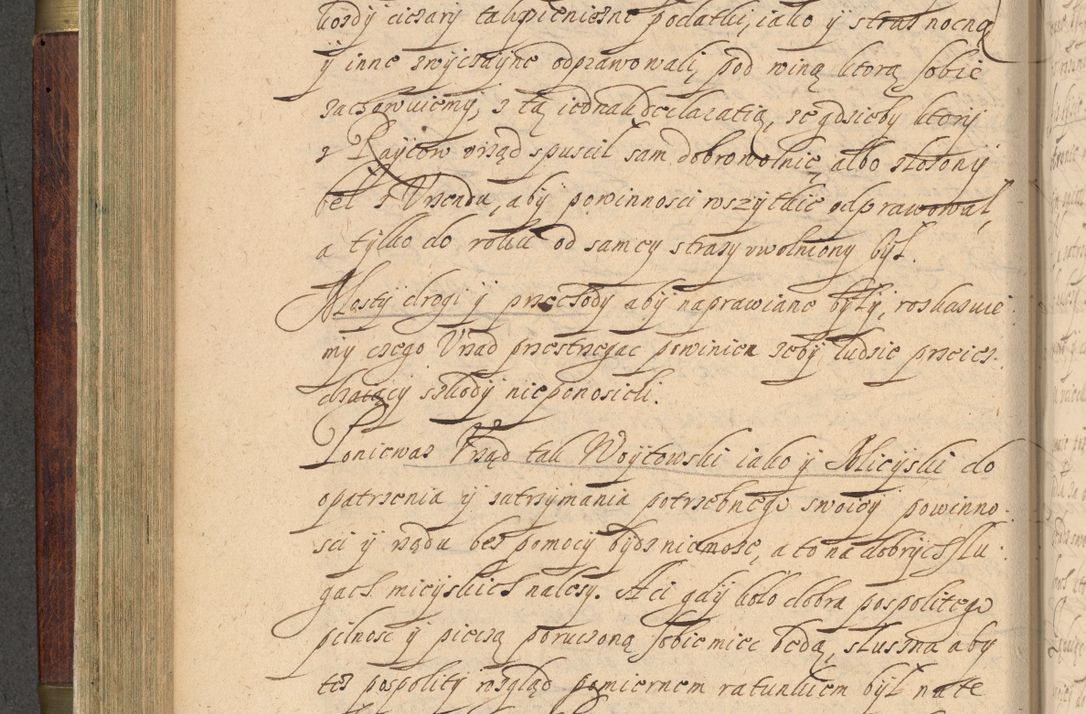 kozdy ciezary tak pieniezne podatki, iako y straz nocną
y inne zwyczayne odprawowali, pod winą ktorą sobie
zachowuiemy, z tą iednak declaratią, ze gdzieby ktory
z Raycow vrząd spuscil sam dobrowolnie, albo złozony
bel z Vrzendu, aby powinnosci wszytkie odprawował,
a tylko do roku od samey strazy vwolniony był.
Mosty drogi y przechody aby naprawiane były, roskazuie:
my czego Vrząd przestrzegac powinien zeby ludzie przeież:
dzaiący szkody nie ponosieli.
Poniewaz Vrząd tak Woytowski iako y Mieyski do
opatrzenia y zatrzymania potrzebnego swoiey powinno:
sci y rządu bez pomocy bydz niemoze, a to na dobrych słu:
gach mieyskich nalezy. A ci gdy koło dobra pospolitego
pilnosc y pieczą poruczoną sobie miec będą, słuszna aby
tez pospolity wzgląd pomiernem ratunkiem był na te